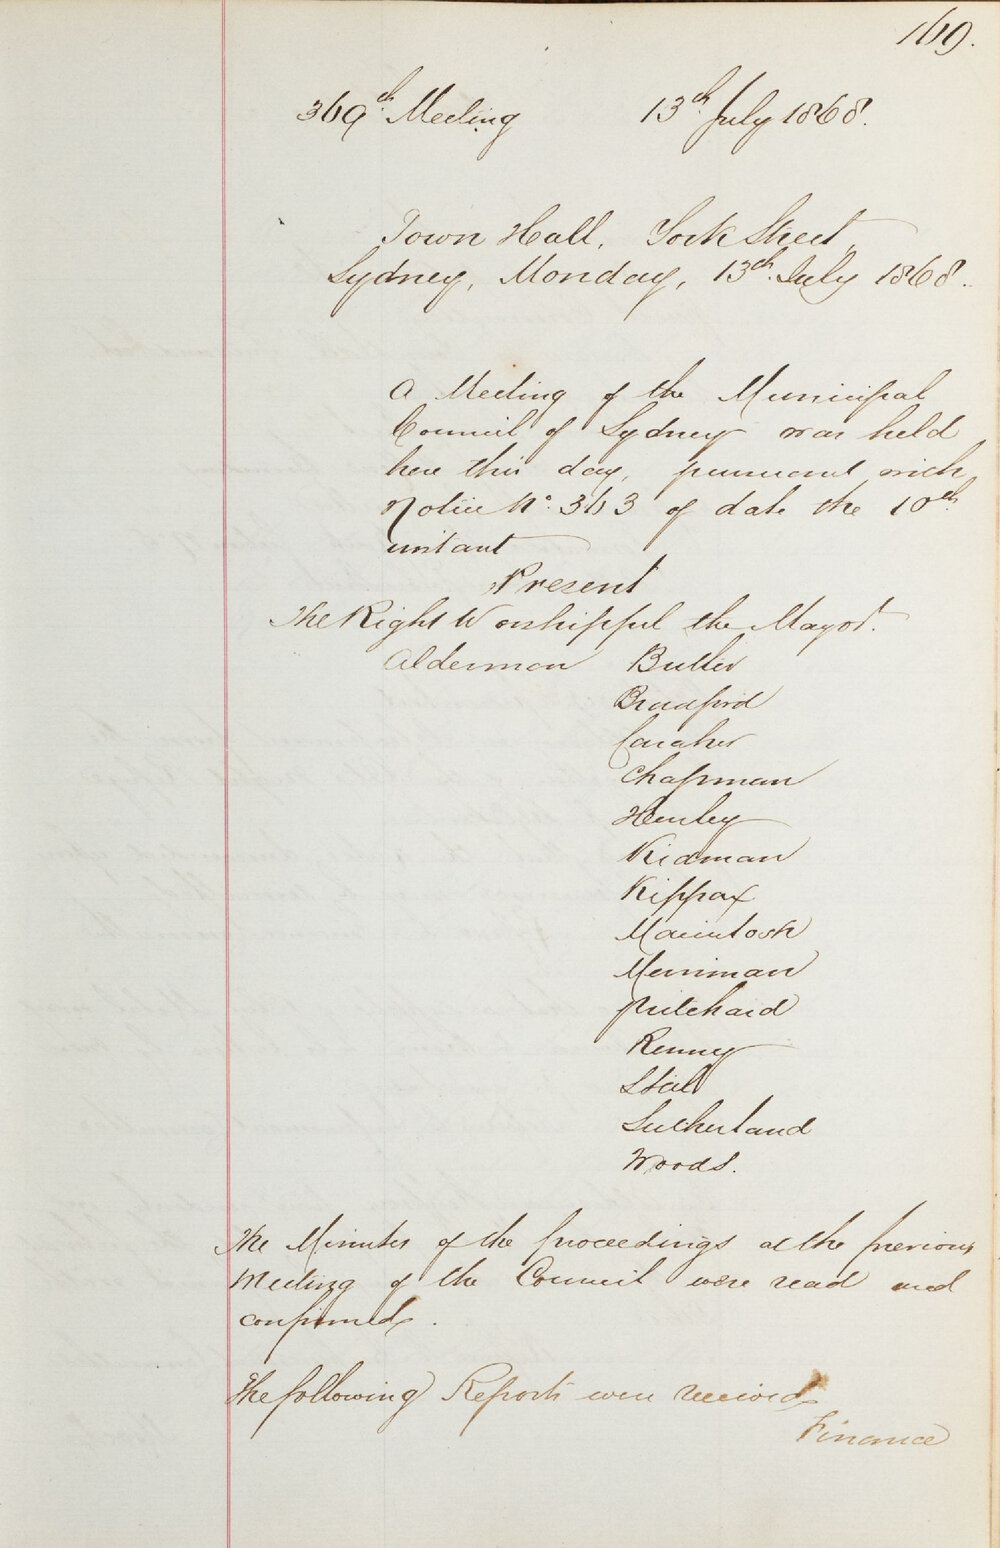 169.
369th Meeting 13th July 1868.
Town Hall, York Street,
Sydney, Monday, 13th July 1868.
A Meeting of the Municipal
Council of Sydney was held
here this day, pursuant with
Notice No. 363 of date the 10th
instant
Present
The Right Worshipful the Mayor.
Alderman Butler
Bradford
Caraher
Chapman
Henley
Kidman
Kippax
Macintosh
Merriman
Pritchard
Renny
Steel
Sutherland
Woods.
The Minutes of the proceedings at the previous
Meeting of the Council were read and
confirmed.
The following Reports were received
Finance